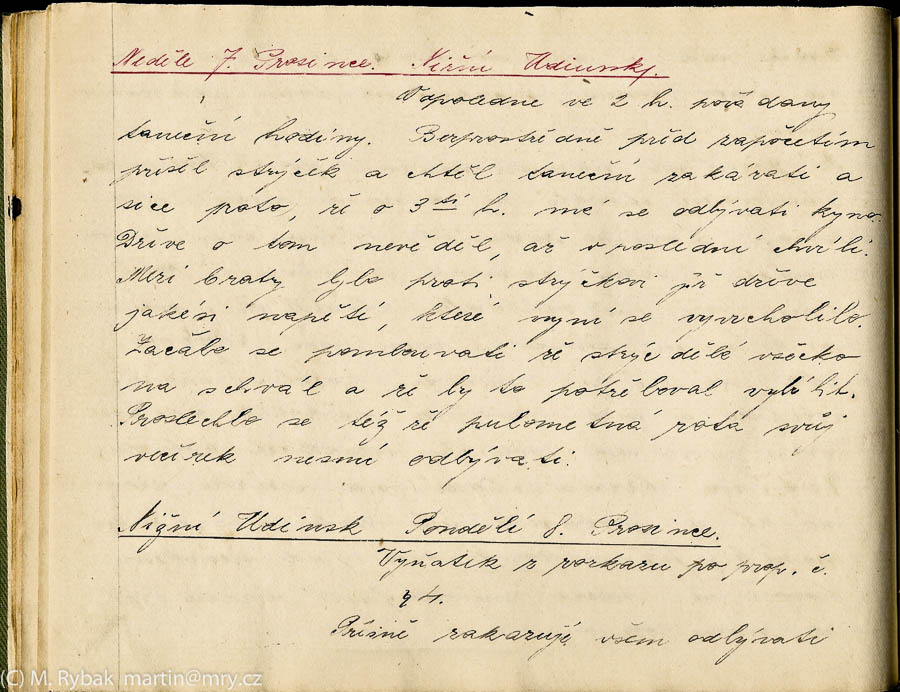 Neděle 7. Prosince. Nižní Udinsky.
Odpoledne ve 2 h. pořádany
taneční hodiny. Bezprostředně před započetím
přišel strýček a chtěl taneční zakázati a
sice proto, že o 3 tí h. má se odbývati kyno.
Dříve o tom nevěděl, až v poslední chvíli.
Mezi braty bylo proti strýčkovi již dříve
jakési napětí, které nyní se vyvrcholilo.
Začalo se že strýc dělá všecko
na schvál a že by to potřeboval vybílit.
Proslechlo se též že pulometná rota svůj
večírek nesmí odbývati.
Nižní Udinsk Pondělí 8. Prosince.
Vyňatek z porkazu po prap. č.
94.
Přísně zakazuji všem odbývati
(C) M. Rybak martin@mry.cz